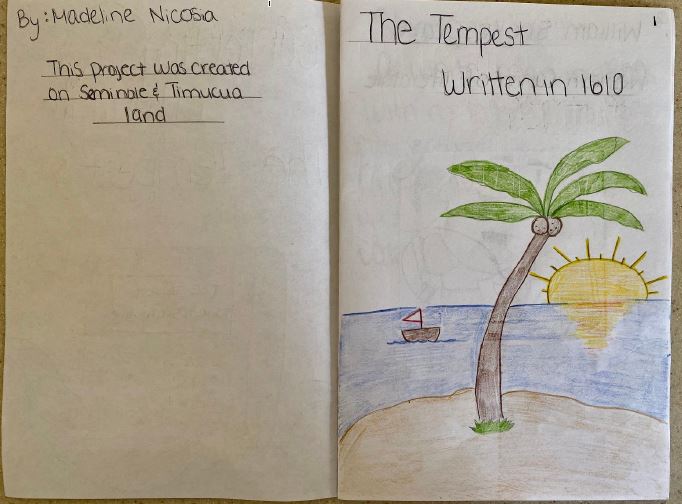 By: Madeline Nicosia
This project was created
on Seminole & Timucua
land
1
The Tempest
Written in 1610